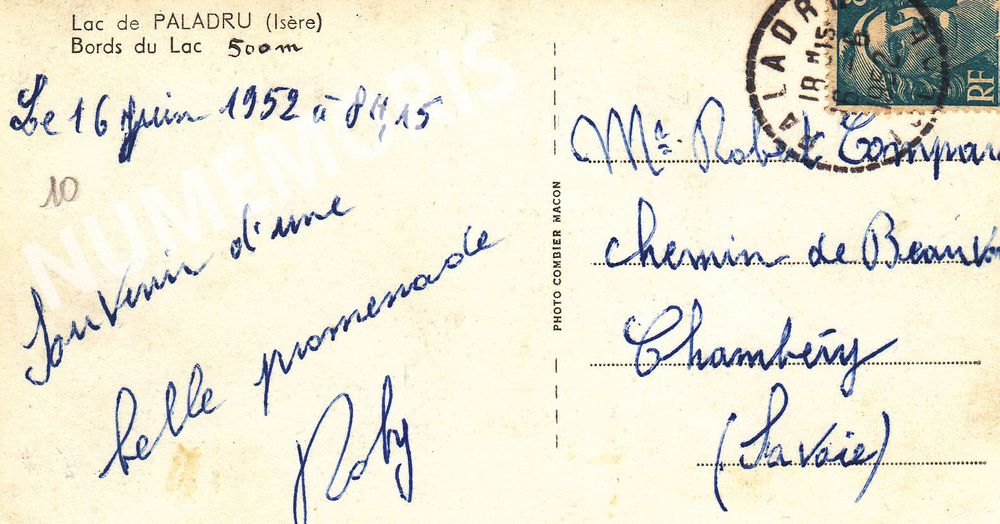 Lac de PALADRU (Isère)
Bords du Lac 500m
Le 16 Juin 1952 à 8H,15
10
Souvenir d'une
belle promenade
Roby
NUMEMORIS
PHOTO COMBIER MACON
PALADRU
18H15
16 6
1952
RF
Mr Robert Compar
Chemin de Beauvo
Chambéry
(Savoie)